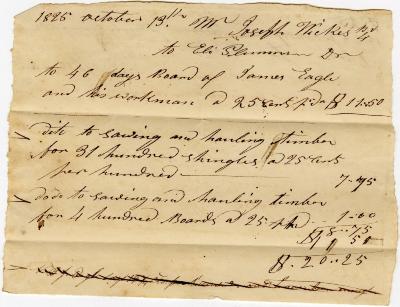 1825 october 13th Mr Joseph Wickes
to Eli Dr
to 46 days Board of James Eagle
and his workman a 25 cents pr d $ 11-50
dito to sawing and hauling timber
for 31 hundred shingles a 25 Cents
per hundred 7-75
dodo to sawing and hauling timber
for 4 hundred Boards a 25 1-00
8-75
11 50
$ 20-25